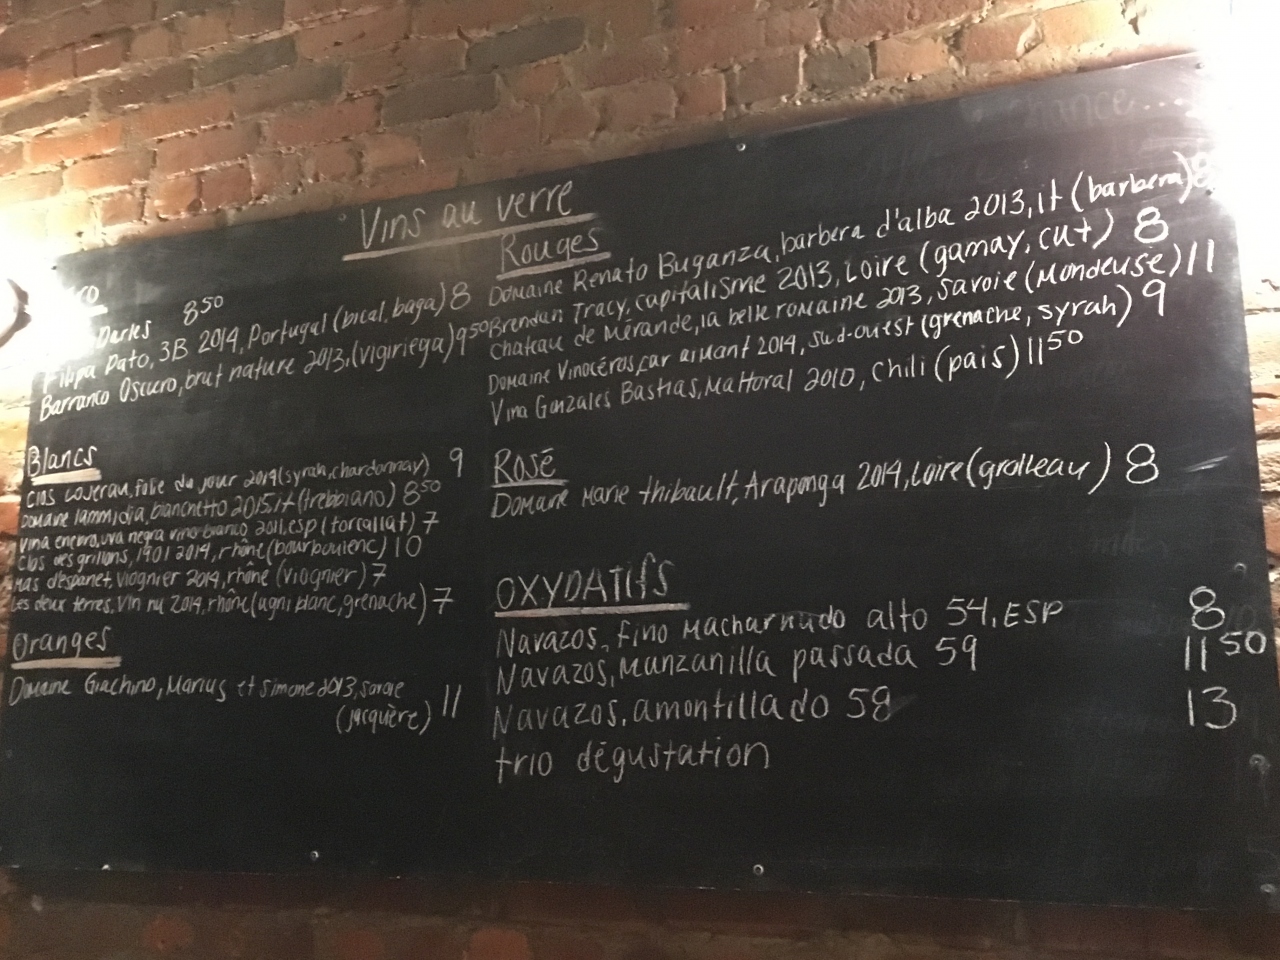 Vins au verre
Darles 8 50
Filipa Pato, 3B 2014, Portugal (bical, baga) 8
Barranco Oscuro, brut nature 2013, (vigiriega) 9 50
Blancs
Clos Lojerau, folie du jour 2014 (syrah, chardonnay) 9
Domaine Iammidia, bianchetto 2015, it (trebbiano) 8 50
Vina enebro, uva negra vino blanco 2011, esp (forcallat) 7
Clos des grillons, 1901 2014, rhône (bourboulenc) 10
Mas d'espanet, viognier 2014, rhône (viognier) 7
Les deux terres, Vin nu 2014, rhône (ugni blanc, grenache) 7
Oranges
Domaine Giachino, Marius et Simone 2013, savoie
(jacquère) 11
Rouges
Domaine Renato Buganza, barbera d'alba 2013, it (barbera) 8
Brendan Tracy, capitalisme 2013, Loire (gamay, cut) 8
Chateau de Mérande, la belle romaine 2013, Savoie (Mondeuse) 11
Domaine Vinocéros, car aimant 2014, sud-ouest (grenache, syrah) 9
Vina Gonzales Bastias, Mattoral 2010, Chili (pais) 11 50
Rosé
Domaine Marie thibault, Araponga 2014, Loire (grolleau) 8
OXYDATifS
Navazos, fino Macharnudo alto 54, ESP 8
Navazos, manzanilla passada 59 11 50
Navazos, amontillado 58 13
trio dégustation